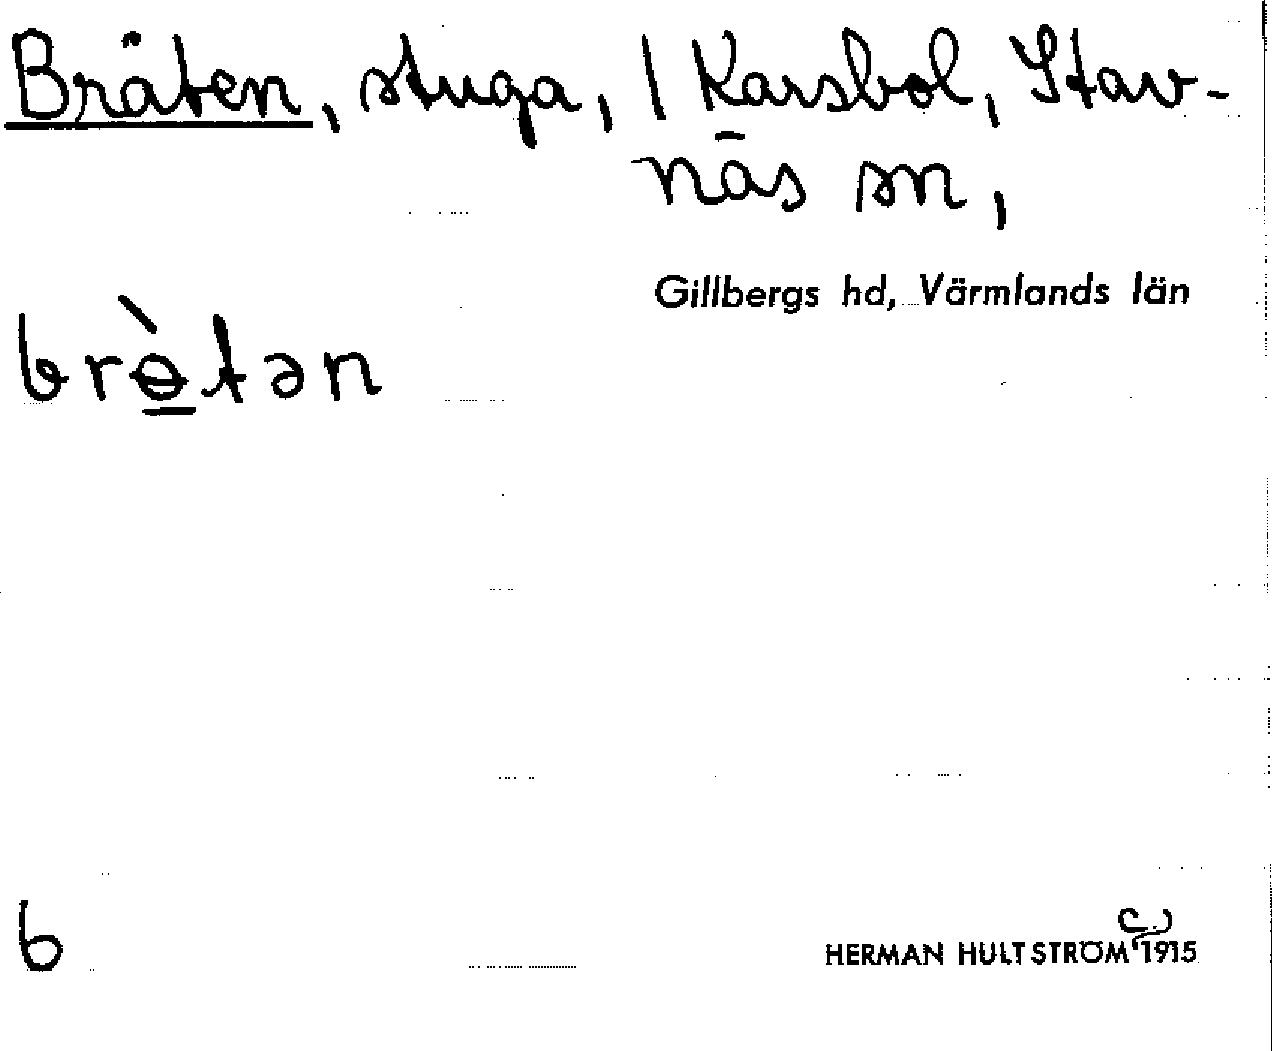 Bråten, stuga, 1 Karsbol, Stav-
näs sn,
Gillbergs hd, Värmlands län
brɵ̱̀tən
6
HERMAN HULTSTRÖM 1915